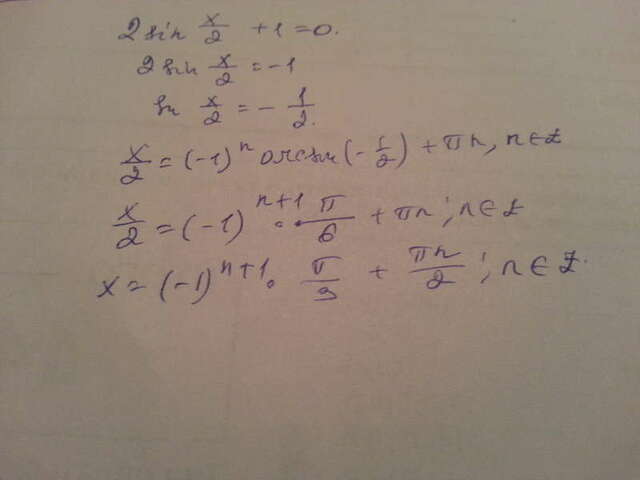 2 sin x/2 + 1 = 0.
2 sin x/2 = -1
sin x/2 = - 1/2.
x/2 = (-1)^n arcsin(-1/2) + πn, n∈Z
x/2 = (-1)^(n+1) · π/6 + πn; n∈Z
x = (-1)^(n+1) · π/3 + πn/2; n∈Z.